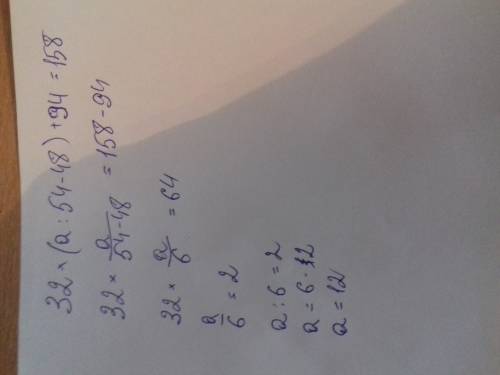 32 × (a : 54-48) +94 = 158
32 × a/54-48 = 158-94
32 × a/6 = 64
a/6 = 2
a : 6 = 2
a = 6·2
a = 12